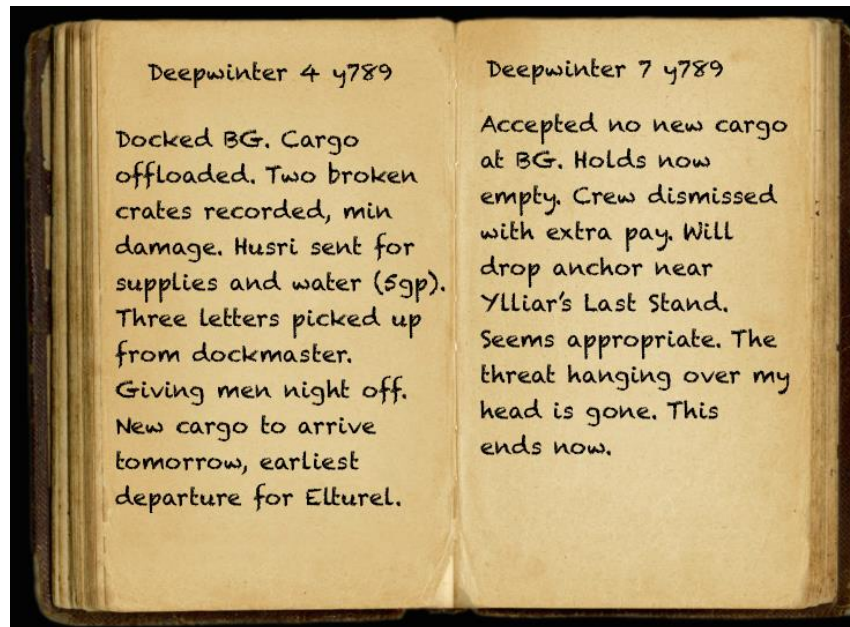 Deepwinter 4 y789
Docked BG. Cargo
offloaded. Two broken
crates recorded, min
damage. Husri sent for
supplies and water (5gp).
Three letters picked up
from dockmaster.
Giving men night off.
New cargo to arrive
tomorrow, earliest
departure for Elturel.
Deepwinter 7 y789
Accepted no new cargo
at BG. Holds now
empty. Crew dismissed
with extra pay. Will
drop anchor near
Ylliar's Last Stand.
Seems appropriate. The
threat hanging over my
head is gone. This
ends now.